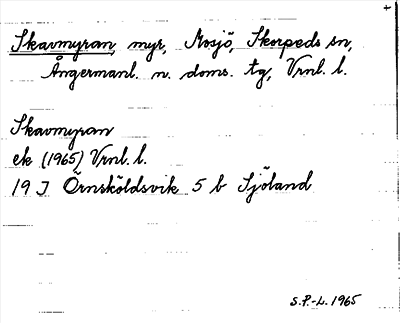 +
Skavmyran, myr, Mosjö, Skorpeds sn,
Ångermanl. n. doms. tg, Vrnl. l.
Skavmyran
ek (1965) Vrnl. l.
19 J Örnsköldsvik 5 b Sjöland
S.P.-L. 1965